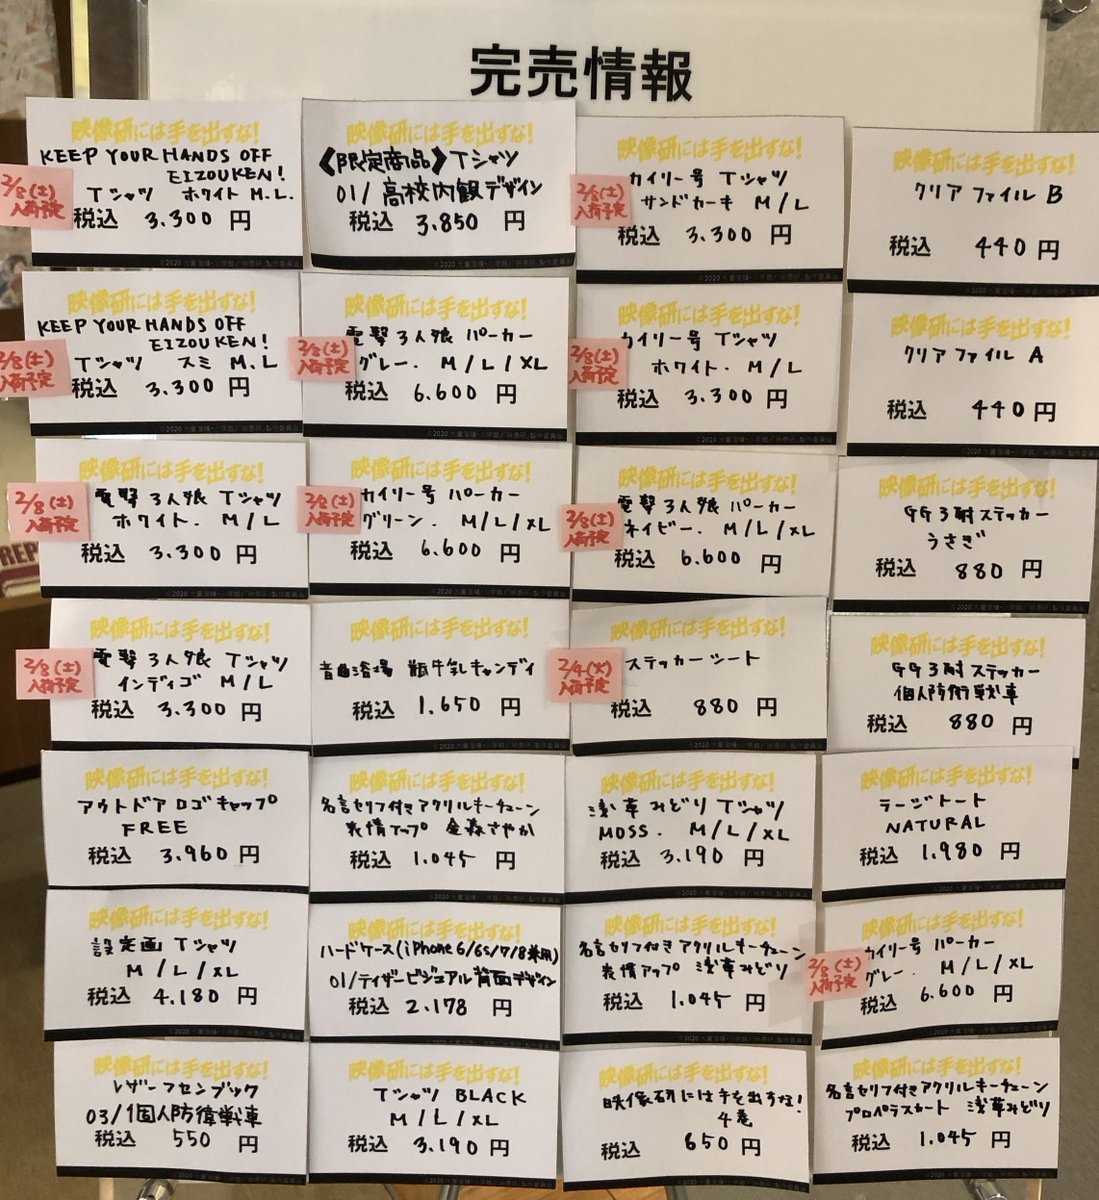 完売情報
映像研には手を出すな!
KEEP YOUR HANDS OFF
EIZOUKEN!
2/8(土)
入荷予定
Tシャツ ホワイト M.L.
税込 3.300 円
映像研には手を出すな!
《限定商品》Tシャツ
01/高校内観デザイン
税込 3.850 円
映像研には手を出すな!
2/8(土)
入荷予定
カイリー号 Tシャツ
サンドカーキ M/L
税込 3.300 円
映像研には手を出すな!
クリアファイル B
税込 440円
映像研には手を出すな!
KEEP YOUR HANDS OFF
EIZOUKEN!
2/8(土)
入荷予定
Tシャツ スミ M.L
税込 3.300 円
映像研には手を出すな!
2/8(土)
入荷予定
電撃3人娘 パーカー
グレー. M/L/XL
税込 6.600 円
映像研には手を出すな!
2/8(土)
入荷予定
カイリー号 Tシャツ
ホワイト. M/L
税込 3.300 円
映像研には手を出すな!
クリアファイル A
税込 440円
映像研には手を出すな!
2/8(土)
入荷予定
電撃3人娘 Tシャツ
ホワイト. M/L
税込 3.300 円
映像研には手を出すな!
2/8(土)
入荷予定
カイリー号 パーカー
グリーン. M/L/XL
税込 6.600 円
映像研には手を出すな!
2/8(土)
入荷予定
電撃3人娘 パーカー
ネイビー. M/L/XL
税込 6.600 円
映像研には手を出すな!
GG3耐ステッカー
うさぎ
税込 880 円
映像研には手を出すな!
2/8(土)
入荷予定
電撃3人娘 Tシャツ
インディゴ M/L
税込 3.300 円
映像研には手を出すな!
音曲浴場 瓶牛乳キャンディ
税込 1.650 円
映像研には手を出すな!
2/4(火)
入荷予定
ステッカーシート
税込 880 円
映像研には手を出すな!
GG3耐ステッカー
個人防衛戦車
税込 880 円
映像研には手を出すな!
アウトドアロゴキャップ
FREE
税込 3.960 円
映像研には手を出すな!
名言セリフ付きアクリルキーチェーン
表情アップ 金森さやか
税込 1.045 円
映像研には手を出すな!
浅草みどりTシャツ
MOSS. M/L/XL
税込 3.190 円
映像研には手を出すな!
ラージトート
NATURAL
税込 1.980 円
映像研には手を出すな!
設定画 Tシャツ
M/L/XL
税込 4.180 円
映像研には手を出すな!
ハードケース(iPhone6/6s/7/8兼用)
01/ティザービジュアル背面デザイン
税込 2.178 円
映像研には手を出すな!
名言セリフ付きアクリルキーチェーン
表情アップ 浅草みどり
税込 1.045 円
映像研には手を出すな!
2/8(土)
入荷予定
カイリー号 パーカー
グレー. M/L/XL
税込 6.600 円
映像研には手を出すな!
レザーフセンブック
03/個人防衛戦車
税込 550 円
映像研には手を出すな!
Tシャツ BLACK
M/L/XL
税込 3.190 円
映像研には手を出すな!
映像研には手を出すな!
4巻
税込 650 円
映像研には手を出すな!
名言セリフ付きアクリルキーチェーン
プロペラスカート 浅草みどり
税込 1.045 円